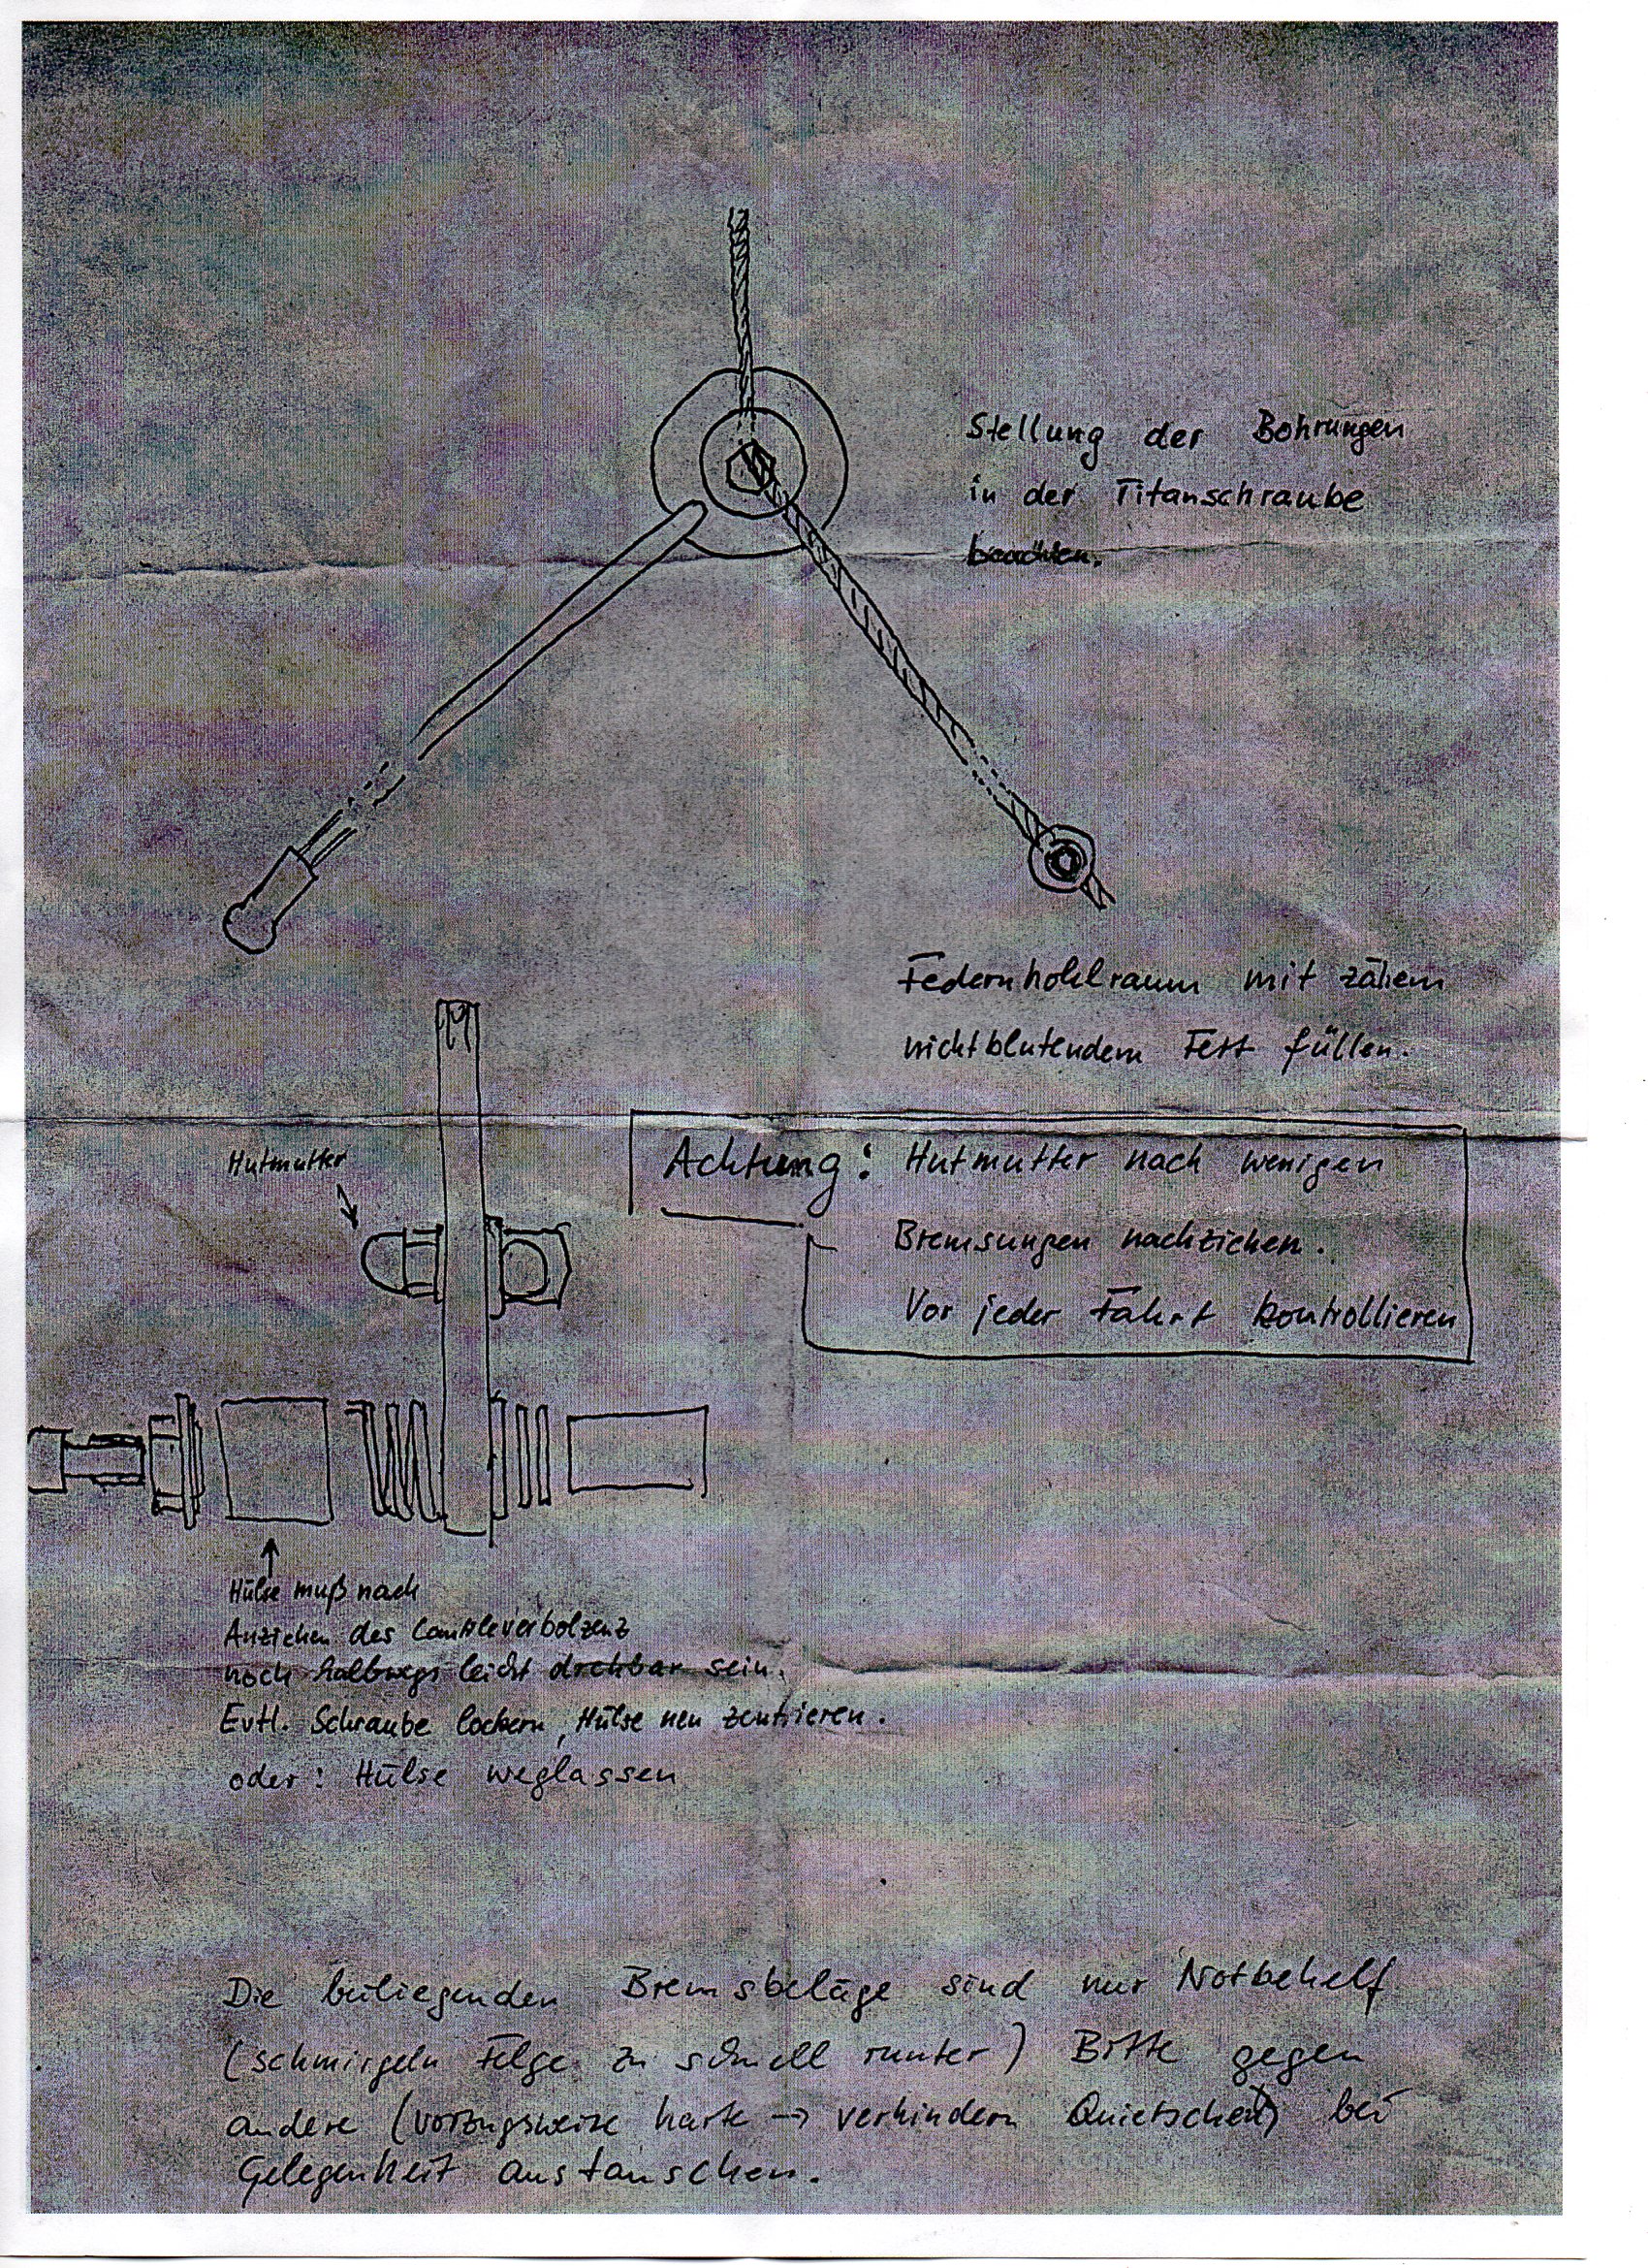 Stellung der Bohrungen
in der Titanschraube
beachten.
Federnhohlraum mit zähem
nichtblutendem Fett füllen.
Hutmutter
Achtung: Hutmutter nach wenigen
Bremsungen nachziehen.
Vor jeder Fahrt kontrollieren
Hülse muß nach
Anziehen des Cantileverbolzens
noch halbwegs leicht drehbar sein.
Evtl. Schraube lockern, Hülse neu zentrieren.
oder: Hülse weglassen
Die beiliegenden Bremsbeläge sind nur Notbehelf
(schmirgeln Felge zu schnell runter) Bitte gegen
andere (vorzugsweise harte → verhindern Quietschen) bei
Gelegenheit austauschen.